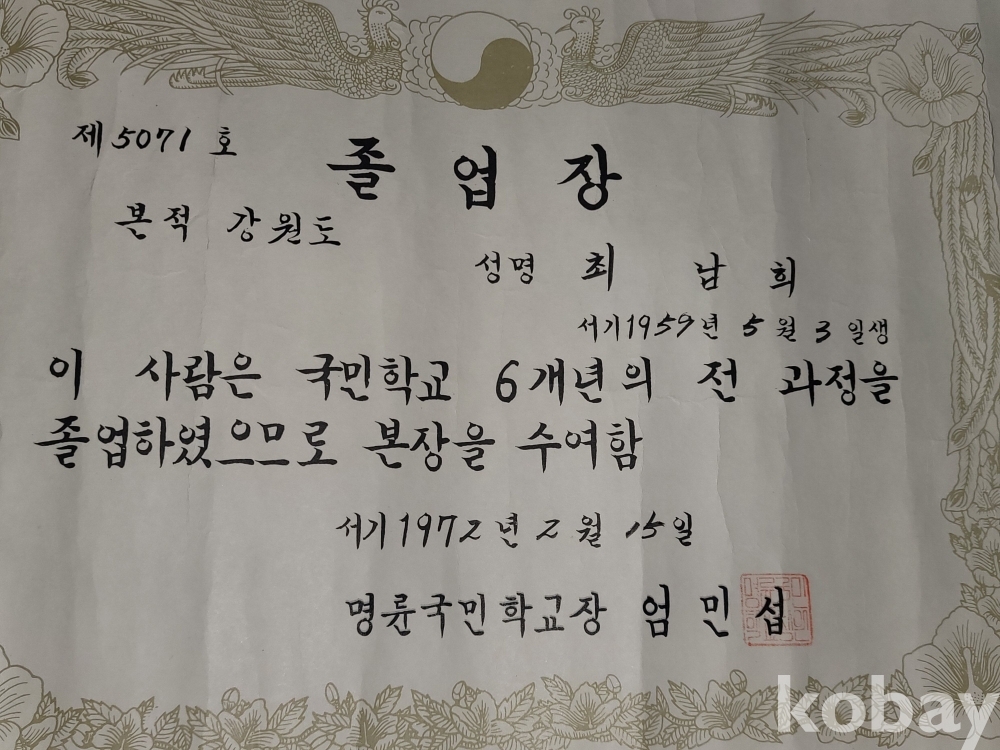 제 5071 호
졸 업 장
본적 강원도
성명 최 남 희
서기1959년 5월 3일생
이 사람은 국민학교 6개년의 전 과정을
졸업하였으므로 본장을 수여함
서기1972년 2월 15일
명륜국민학교장 엄민섭
kobay